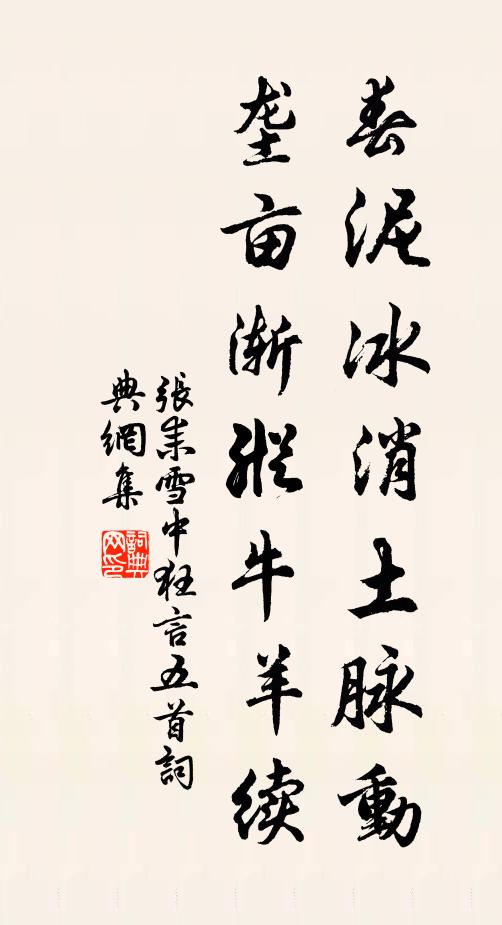 春泥冰消土脉動
垄亩渐縱牛羊续
張耒雪中狂言五首詞
典網集
詞典网印